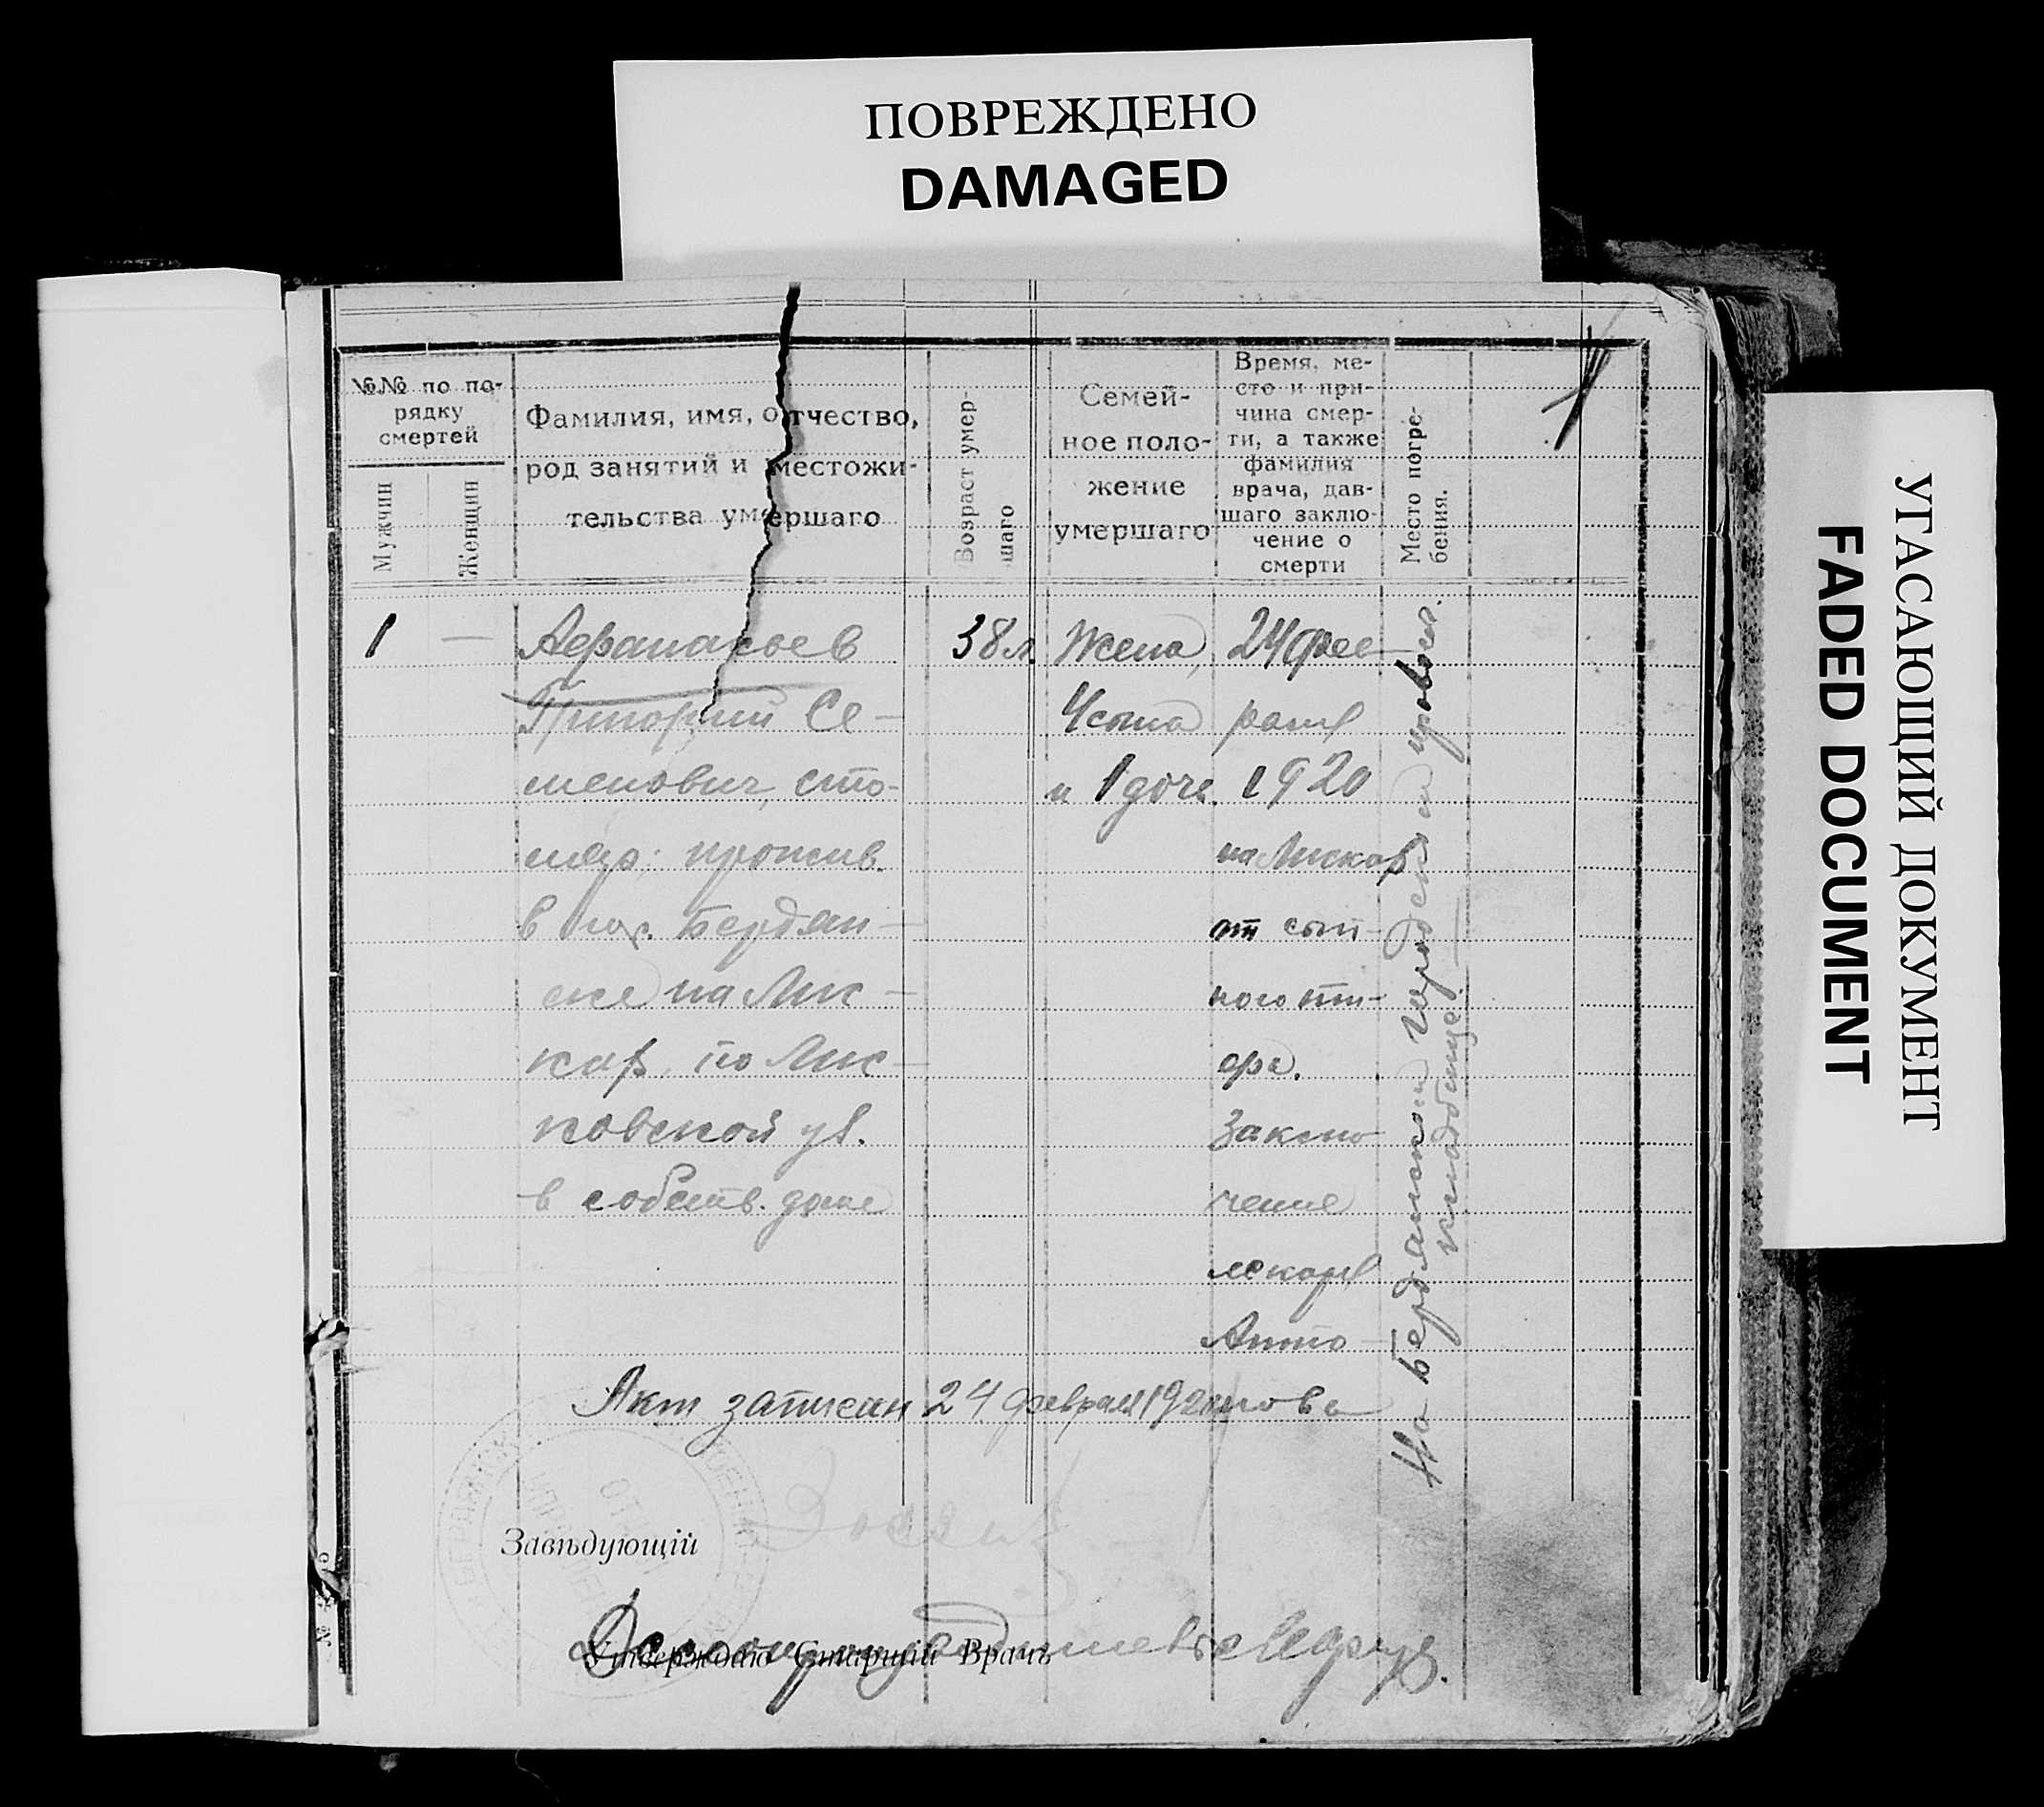 ПОВРЕЖДЕНО
DAMAGED
УГАСАЮЩИЙ ДОКУМЕНТ
FADED DOCUMENT
№№ по по-
рядку
смертей
Мужчин
Женщин
Фамилия, имя, отчество,
род занятий и местожи-
тельства умершаго
Возраст умер-
шаго
Семей-
ное поло-
жение
умершаго
Время, ме-
сто и при-
чина смер-
ти, а также
фамилия
врача, дав-
шаго заклю-
чение о
смерти
Место погре-
бения.
1
—
Афанасьев
Григорий Се-
менович, сто-
ляр; прожив.
в гор. Бердян-
ске на Лис-
ках, по Лис-
ковской ул.
в собств. доме
38 л.
Жена,
4 сына
и 1 дочь.
24 фев-
раля
1920
на Лисках
от сып-
ного ти-
фа.
Заклю-
чение
лекаря
Анто-
нова
На Бердянском городском правосл.
кладбище.
Акт записан 24 февраля 192
Завѣдующій
Утверждаю Старшій Врачъ